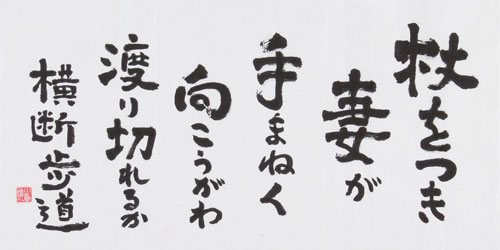 杖をつき
妻が
手まねく
向こうがわ
渡り切れるか
横断歩道